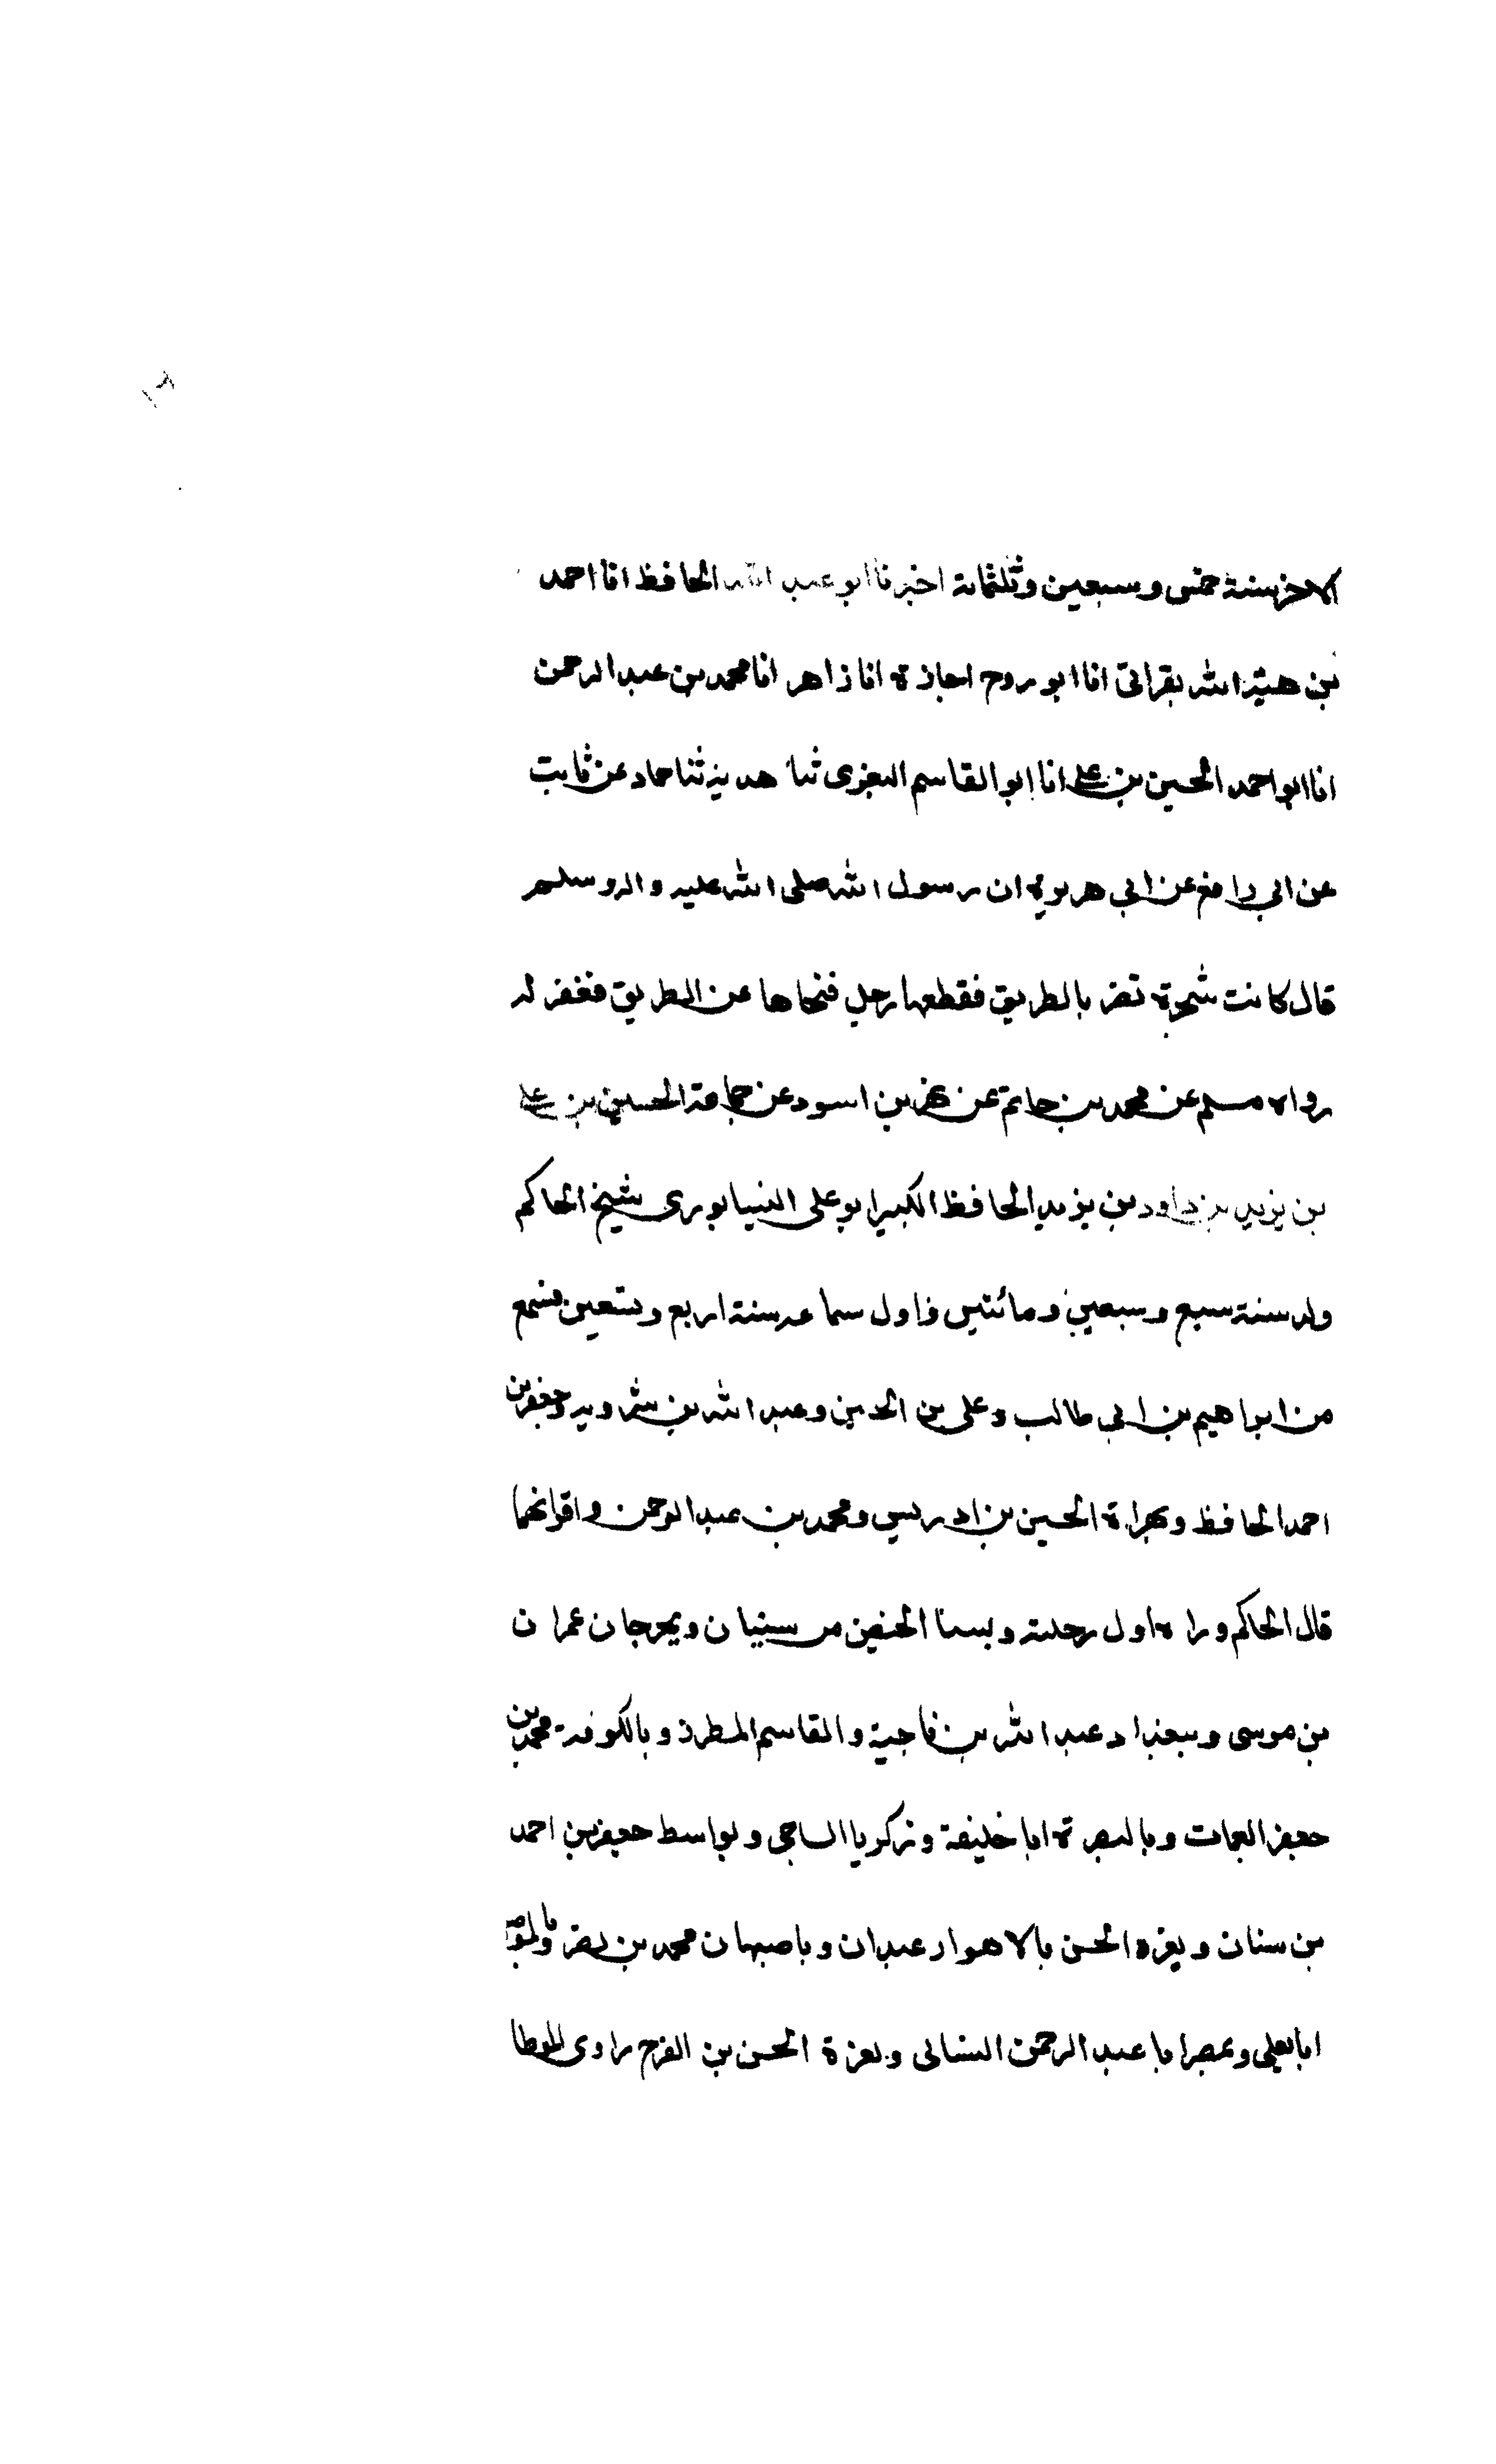 الاخر سنة خمس وسبعين وثلثماىة اخبرنا ابو عبد الله الحافظ انا احمد
بن هبة الله بقراتى انا ابو روح اجازة انا زاهر انا محمد بن عبد الرحمن
انا ابو احمد الحسين بن على انا ابو القاسم البغوى ثنا هدبة ثنا حماد عن ثابت
عن ابى رافع عن ابى هريرة ان رسول الله صلى الله عليه واله وسلم
قال كانت شجرة تضر بالطريق فقطعها رجل فنحاها عن الطريق فغفر له
رواه مسلم عن محمد بن حاتم عن بهز بن اسود عن حماد الحسين بن على
بن يزيد بن داود بن يزيد الحافظ الكبير ابو على النيسابورى شيخ الحاكم
ولد سنة سبع وسبعين ومائتين واول سماعه سنة اربع وتسعين فسمع
من ابراهيم بن ابى طالب وعلى بن الحسين وعبد الله بن شرويه وجعفر بن
احمد الحافظ وبهراة الحسين بن ادريس ومحمد بن عبد الرحمن واقرانهما
قال الحاكم وراه اول رحلته وبنسا الحسن بن سفيان وبجرجان عمران
بن موسى وببغداد عبد الله بن ناجية والقاسم المطرز وبالكوفة محمد بن
جعفر القتات وبالبصرة ابا خليفة وزكريا الساجى وبواسط جعفر بن احمد
بن سنان وبغزة الحسن بالاهواز عبدان وباصبهان محمد بن نصر وبالموصل
ابا يعلى وبمصر ابا عبد الرحمن النسائى وبغزة الحسن بن الفرج راوى الموطا